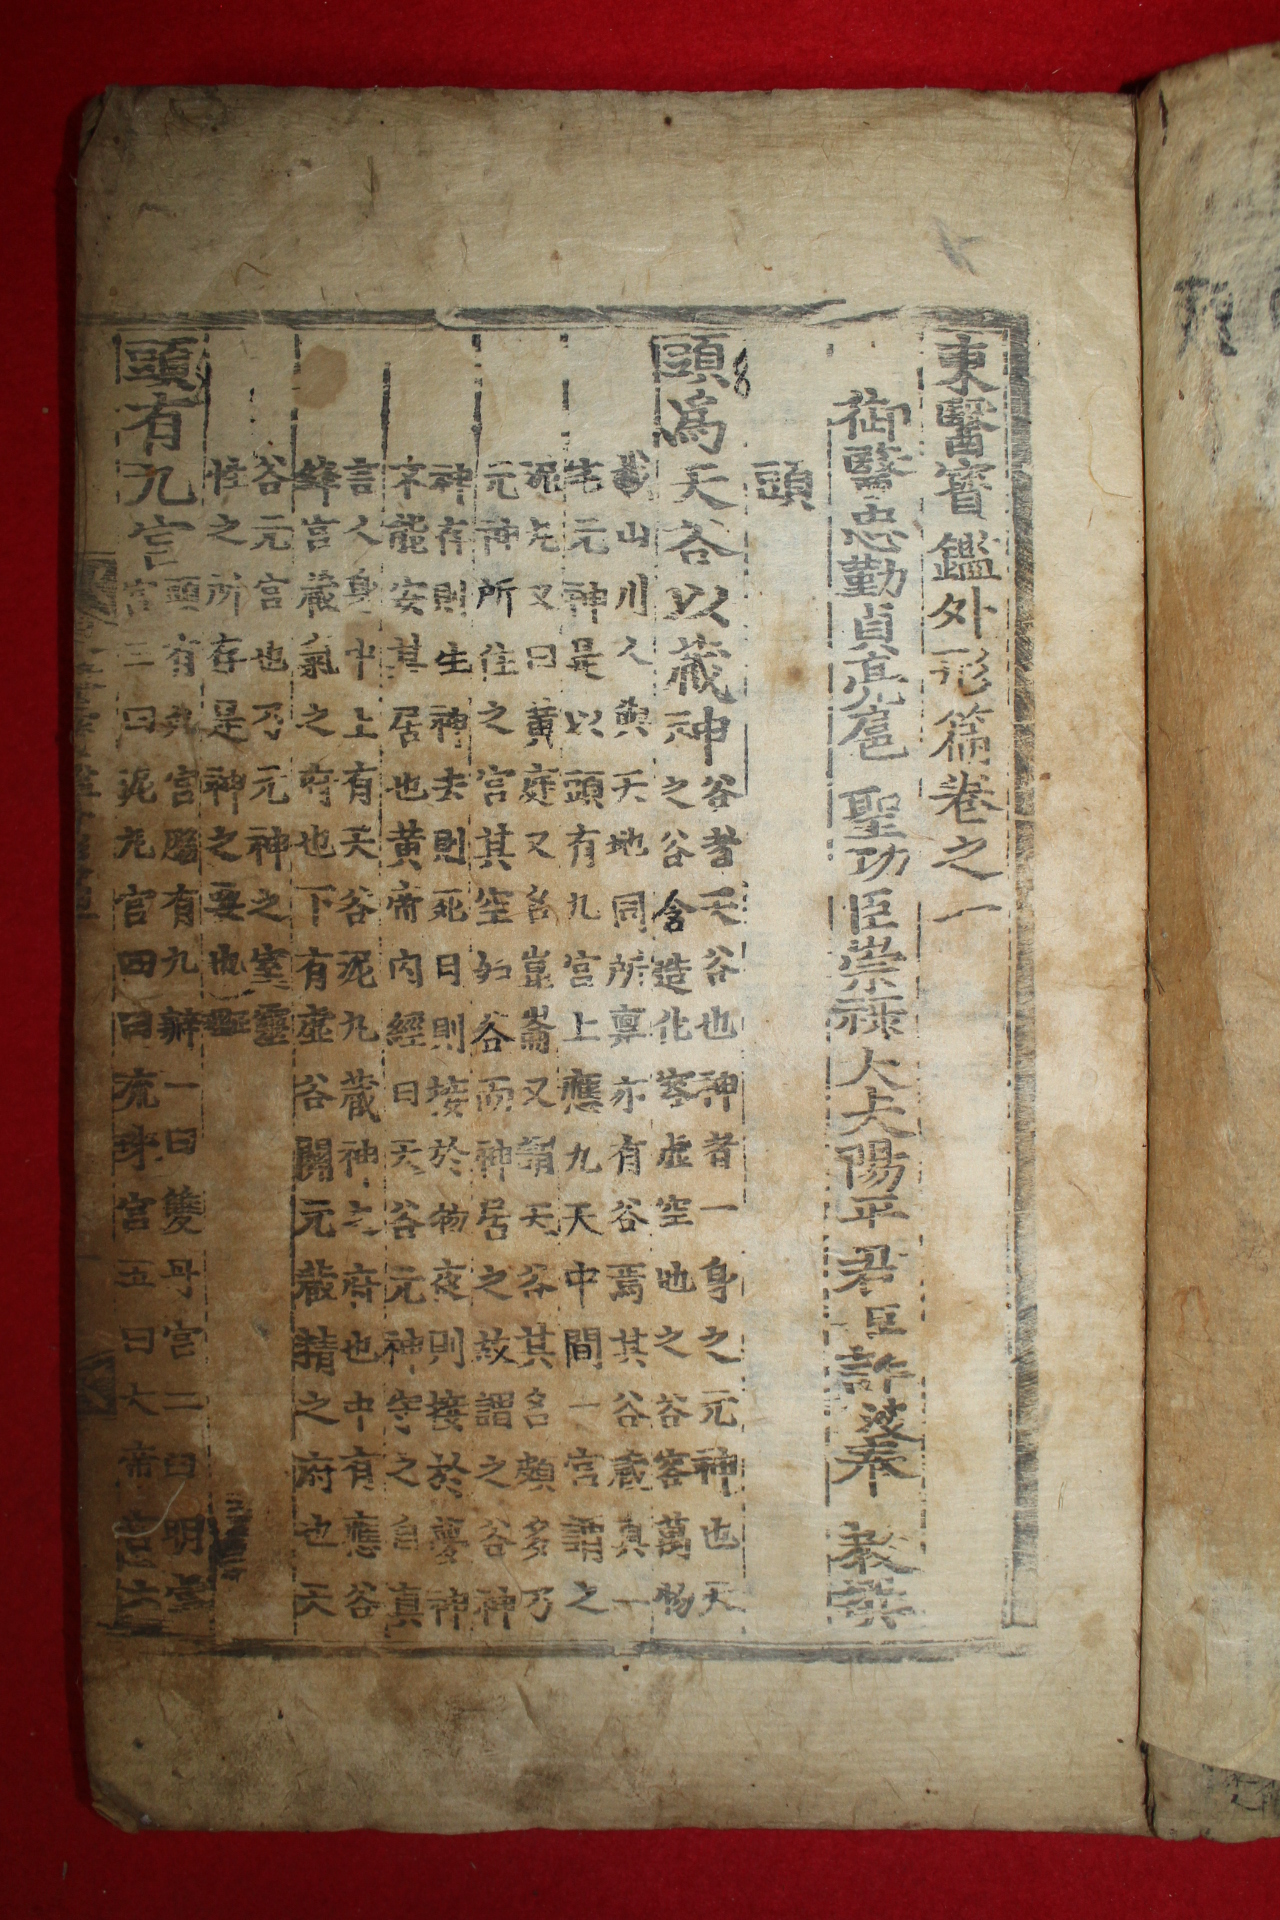 東醫寶鑑外形篇卷之一
御醫忠勤貞亮扈 聖功臣崇祿大夫陽平君臣許浚奉 教撰
頭
頭爲天谷以藏神
谷者天谷也神者一身之元神也天
之谷含造化容虛空地之谷容萬物
載山川人與天地同所稟亦有谷焉其谷藏真一
宅元神是以頭有九宮上應九天中間一宮謂之
泥丸又曰黃庭又名崑崙又謂天谷其名頗多乃
元神所住之宮其空如谷而神居之故謂之谷神
神存則生神去則死日則接於物夜則接於夢神
不能安其居也黃帝內經曰天谷元神守之自真
言人身中上有天谷泥丸藏神之府也中有應谷
絳宮藏氣之府也下有虛谷關元藏精之府也天
谷元宮也乃元神之室靈
性之所存是神之要也
頭有九宮
頭有九宮腦有九瓣一曰雙丹宮二曰明堂
宮三曰泥丸宮四曰流珠宮五曰大帝宮六